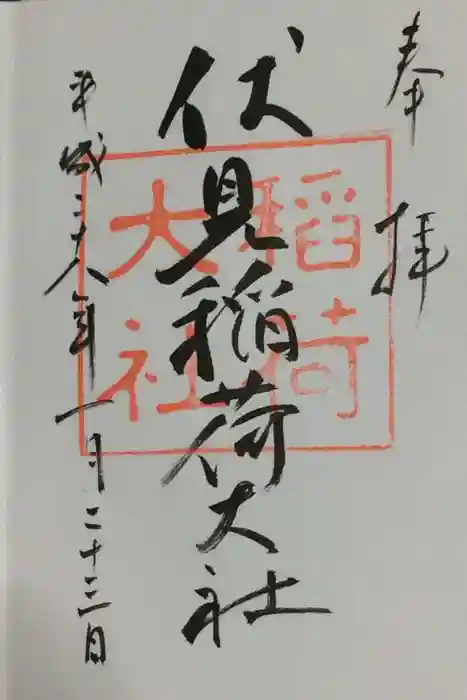 奉拝
伏見稲荷大社
稲荷
大社
平成二十八年一月二十三日